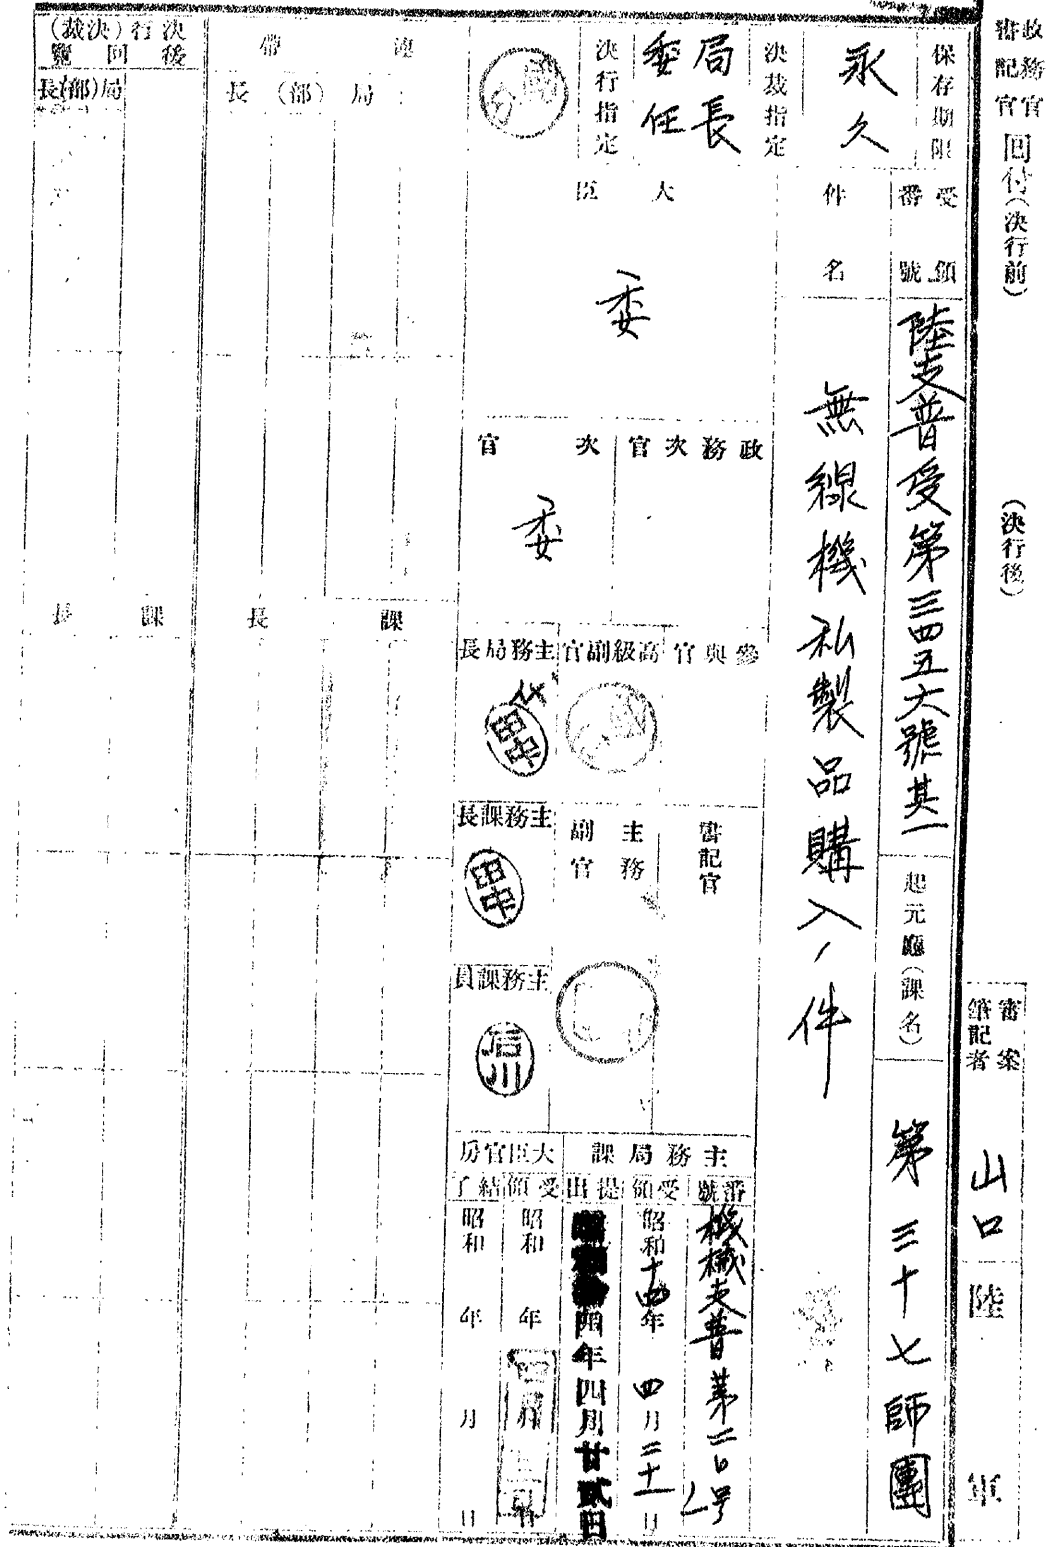 政務官
書記官
回付(決行前)
(決行後)
審案
筆記者
山口
陸軍
保存期限
永久
決裁指定
局長
委任
決行指定
受領番號
陸支普受第三四五六號其一
起元廳(課名)
第三十七師團
件名
無線機私製品購入ノ件
大臣
委
政務次官
次官
委
參與官
高級副官
主務局長
代
田中
書記官
主務副官
主務課長
田中
主務課員
石川
主務局課
番號
機械支普第二
号
受領
昭和十四年四月二十一日
提出
四年四月廿貳日
大臣官房
受領
昭和 年 月 日
結了
昭和 年 月 日
連帶
局(部)長
課長
決行(決裁)後
回覽
局(部)長
課長